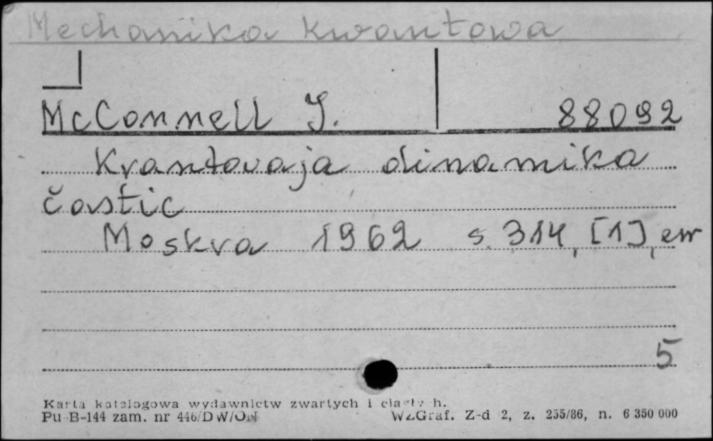 Mechanika kwantowa
McConnell J. 88092
Kvantovaja dinamika
častic
Moskva 1962 s. 314, [1], err
5
Karta katalogowa wydawnictw zwartych i
Pu-B-144 zam. nr 446/DW/ON WZGraf. Z-d 2, z. 255/86, n. 6 350 000